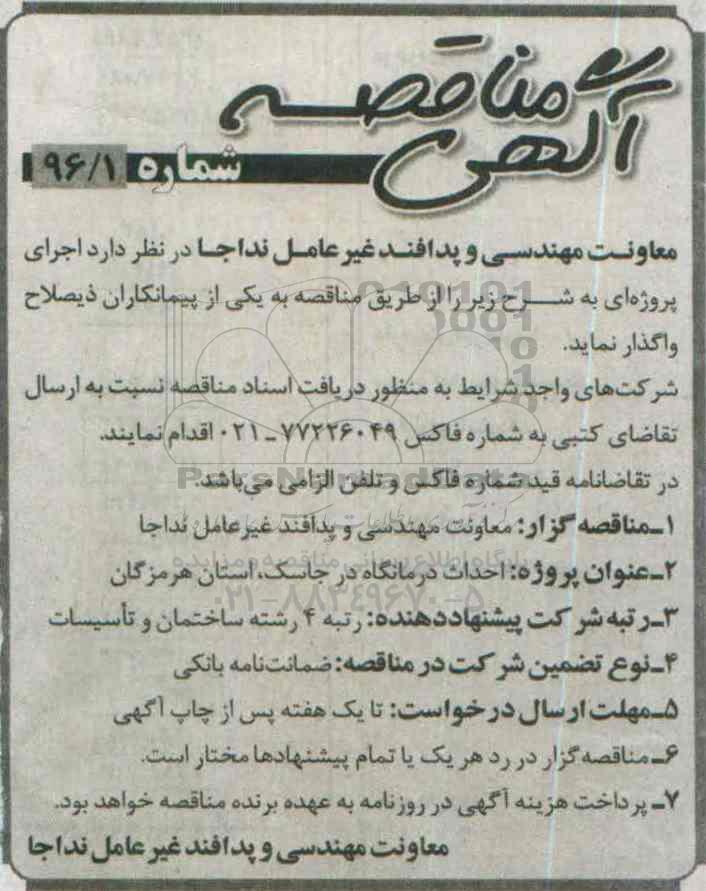 آگهی مناقصه
شماره ۹۶/۱
معاونت مهندسی و پدافند غیر عامل نداجا در نظر دارد اجرای
پروژه‌ای به شرح زیر را از طریق مناقصه به یکی از پیمانکاران ذیصلاح
واگذار نماید.
شرکت‌های واجد شرایط به منظور دریافت اسناد مناقصه نسبت به ارسال
تقاضای کتبی به شماره فاکس ۷۷۲۲۶۰۴۹ ـ ۰۲۱ اقدام نمایند.
در تقاضانامه قید شماره فاکس و تلفن الزامی می‌باشد.
۱ـ مناقصه گزار: معاونت مهندسی و پدافند غیرعامل نداجا
۲ـ عنوان پروژه: احداث درمانگاه در جاسک، استان هرمزگان
۳ـ رتبه شرکت پیشنهاددهنده: رتبه ۴ رشته ساختمان و تأسیسات
۴ـ نوع تضمین شرکت در مناقصه: ضمانت‌نامه بانکی
۵ـ مهلت ارسال درخواست: تا یک هفته پس از چاپ آگهی
۶ـ مناقصه گزار در رد هر یک یا تمام پیشنهادها مختار است.
۷ـ پرداخت هزینه آگهی در روزنامه به عهده برنده مناقصه خواهد بود.
معاونت مهندسی و پدافند غیر عامل نداجا
ParsNamadData
پایگاه اطلاع رسانی مناقصه و مزایده
۰۲۱-۸۸۳۴۹۶۷۰-۵